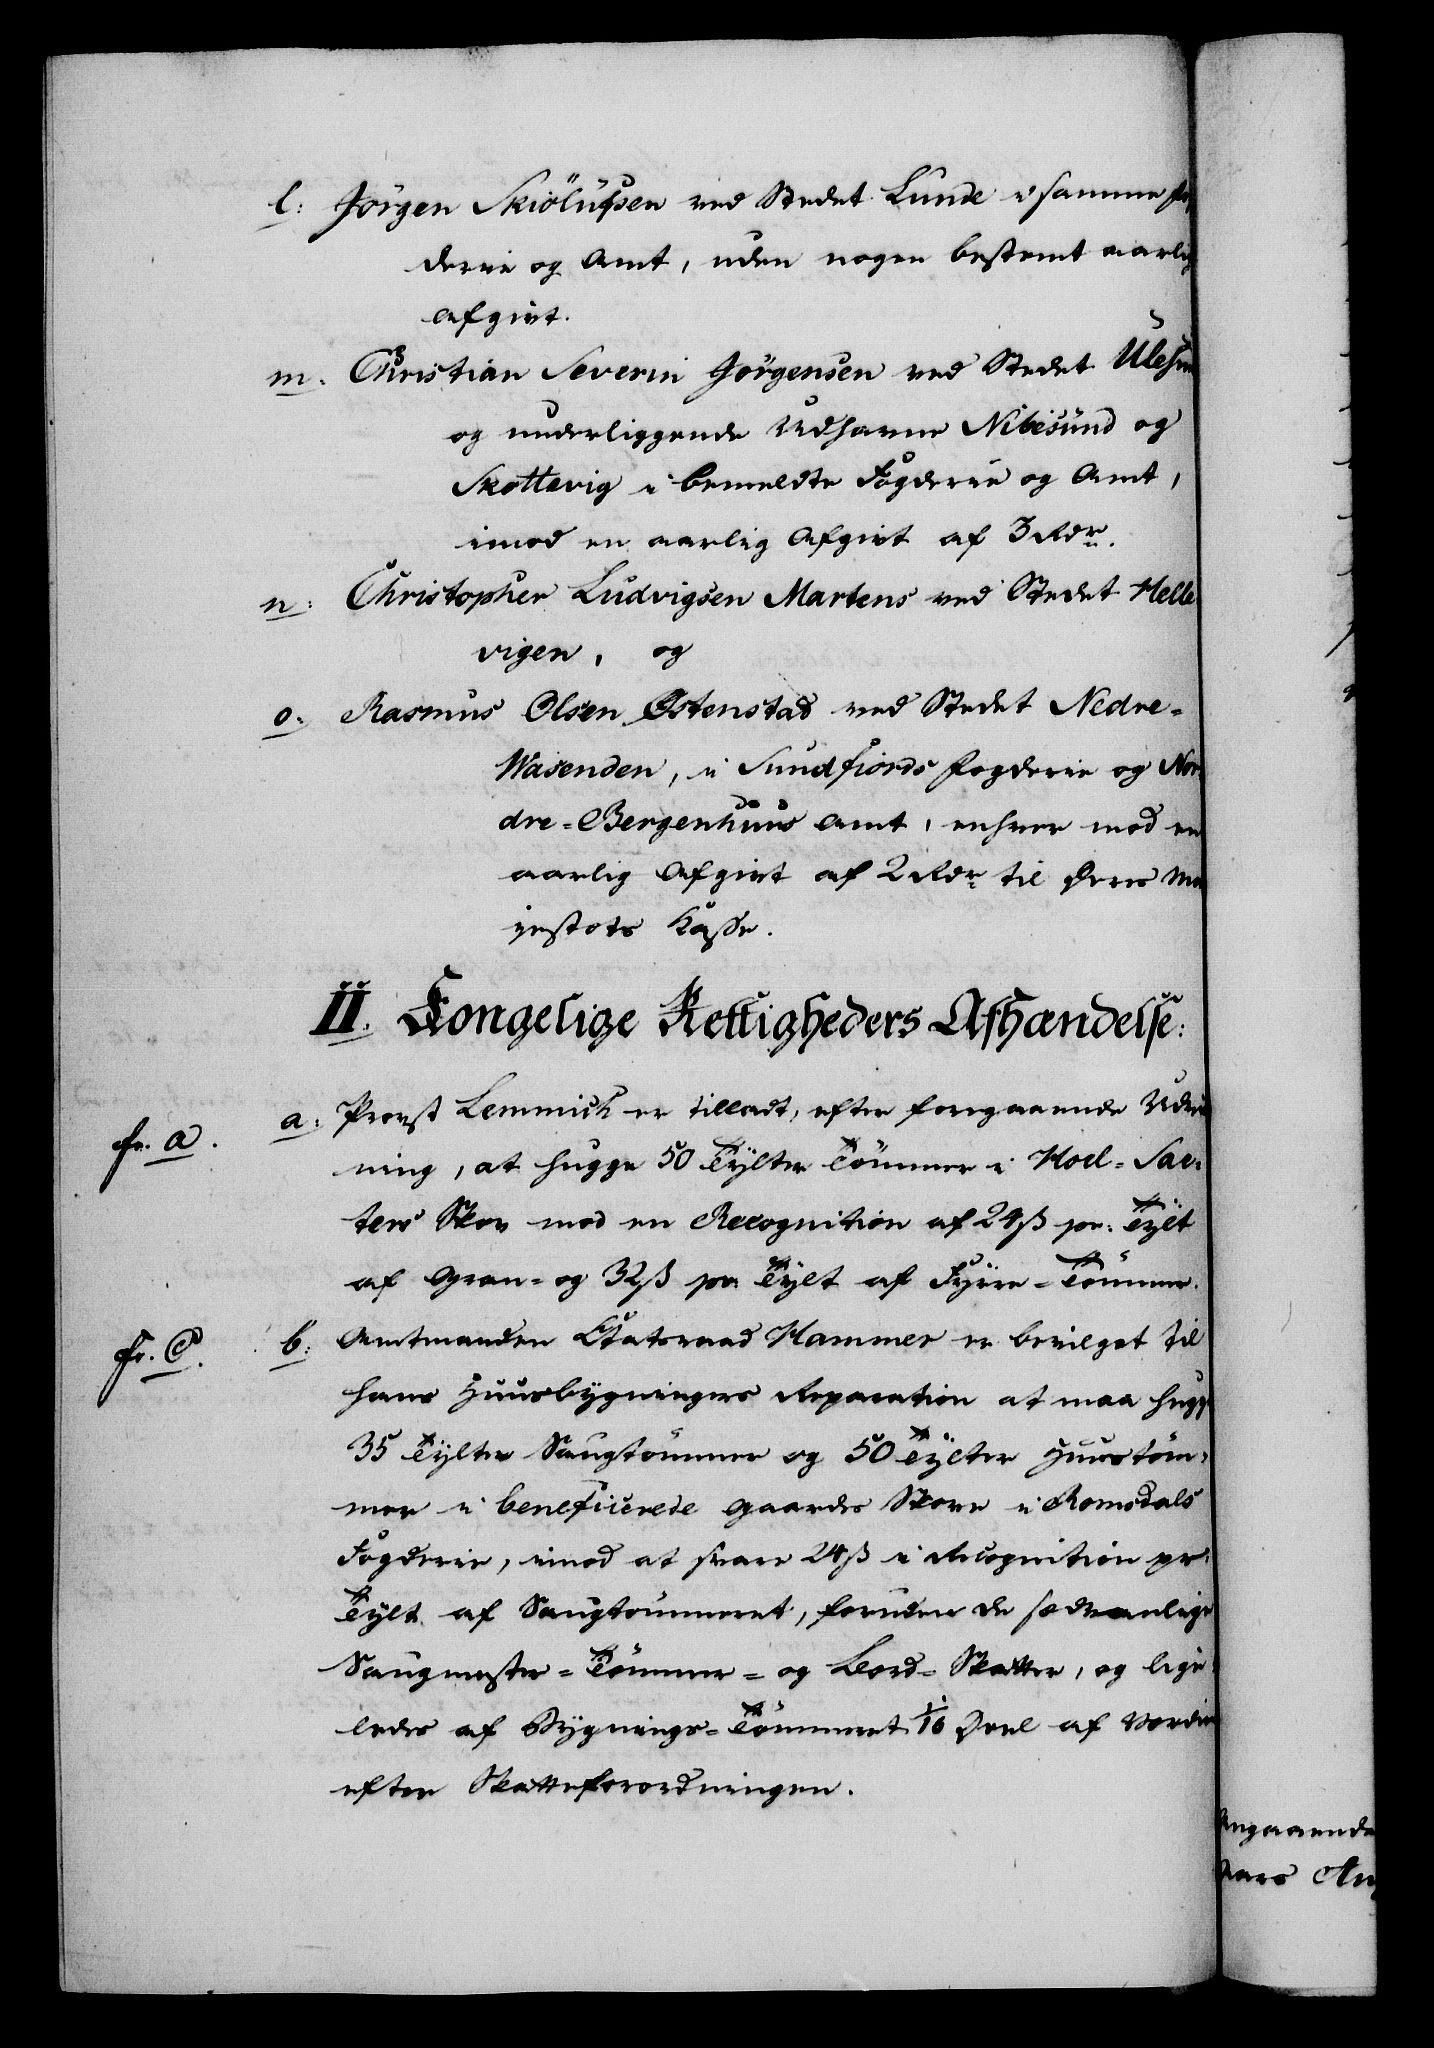 l: Jörgen Skiölüfsen ved Stedet Lunde i samme Fo-
derie og Amt, uden nogen bestemt aarlig
Afgivt.
m. Christian Severin Jörgensen ved Stedet Ulesun
og underliggende Udhavne Nibesünd og
Skottevig i bemeldte Fogderie og Amt,
imod en aarlig Afgivt af 3 Rdr.
n: Christopher Ludvigsen Martens ved Stedet Helle
vigen, og
o: Rasmus Olsen Østenstad ved Stedet Nedre-
Wasenden, i Sundfiords Fogderie og Nor
dre-Bergenhuus Amt, enhver mod en
aarlig Afgivt af 2 Rdr til Deres Ma
jestets Kasse.
II. Kongelige Rettigheders Afhændelse:
fr. a. a: Provst Lemmich er tilladt, efter foregaaende Udvi
ning, at hugge 50 Tylter Tömmer i Hoel-Sæ-
ters Skov mod en Recognition af 24 ß pr. Tylt
af Gran- og 32 ß pr Tylt af Fyrre-Tömmer.
fr. C. b: Amtmanden Etatsraad Hammer er bevilget til
hans Huusbygningers Reparation at maa hugge
35 Tylter Saugtömmer og 50 Tylter Huustöm-
mer i beneficerede Gaardes Skove i Romsdals
Fogderie, imod at svare 24 ß i Recognition pr.
Tylt af Saugtömmeret, foruden de sædvanlige
Saugmester-Tömmer- og Bord-Skatter, og lige
ledes af Bygnings-Tömmeret 1/16 Deel af Værdien
efter Skatteforordningen.
Angaaende
Aars